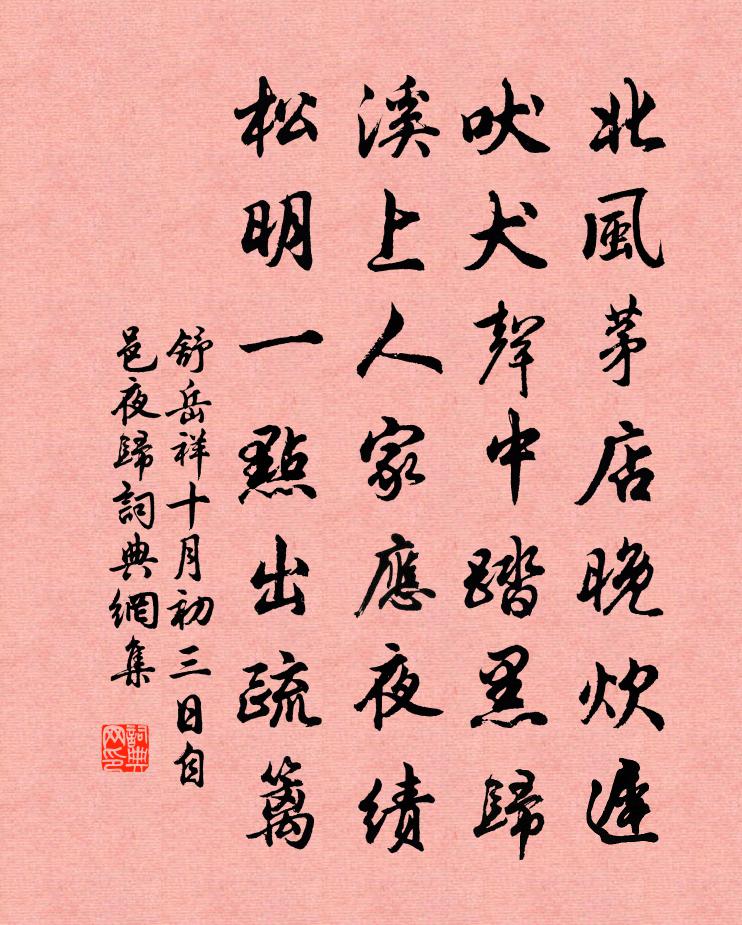 北風茅店晚炊遲
吠犬聲中踏黑歸
溪上人家應夜績
松明一點出疏籬
舒岳祥十月初三日自
邑夜歸詞典網集
詞典網印